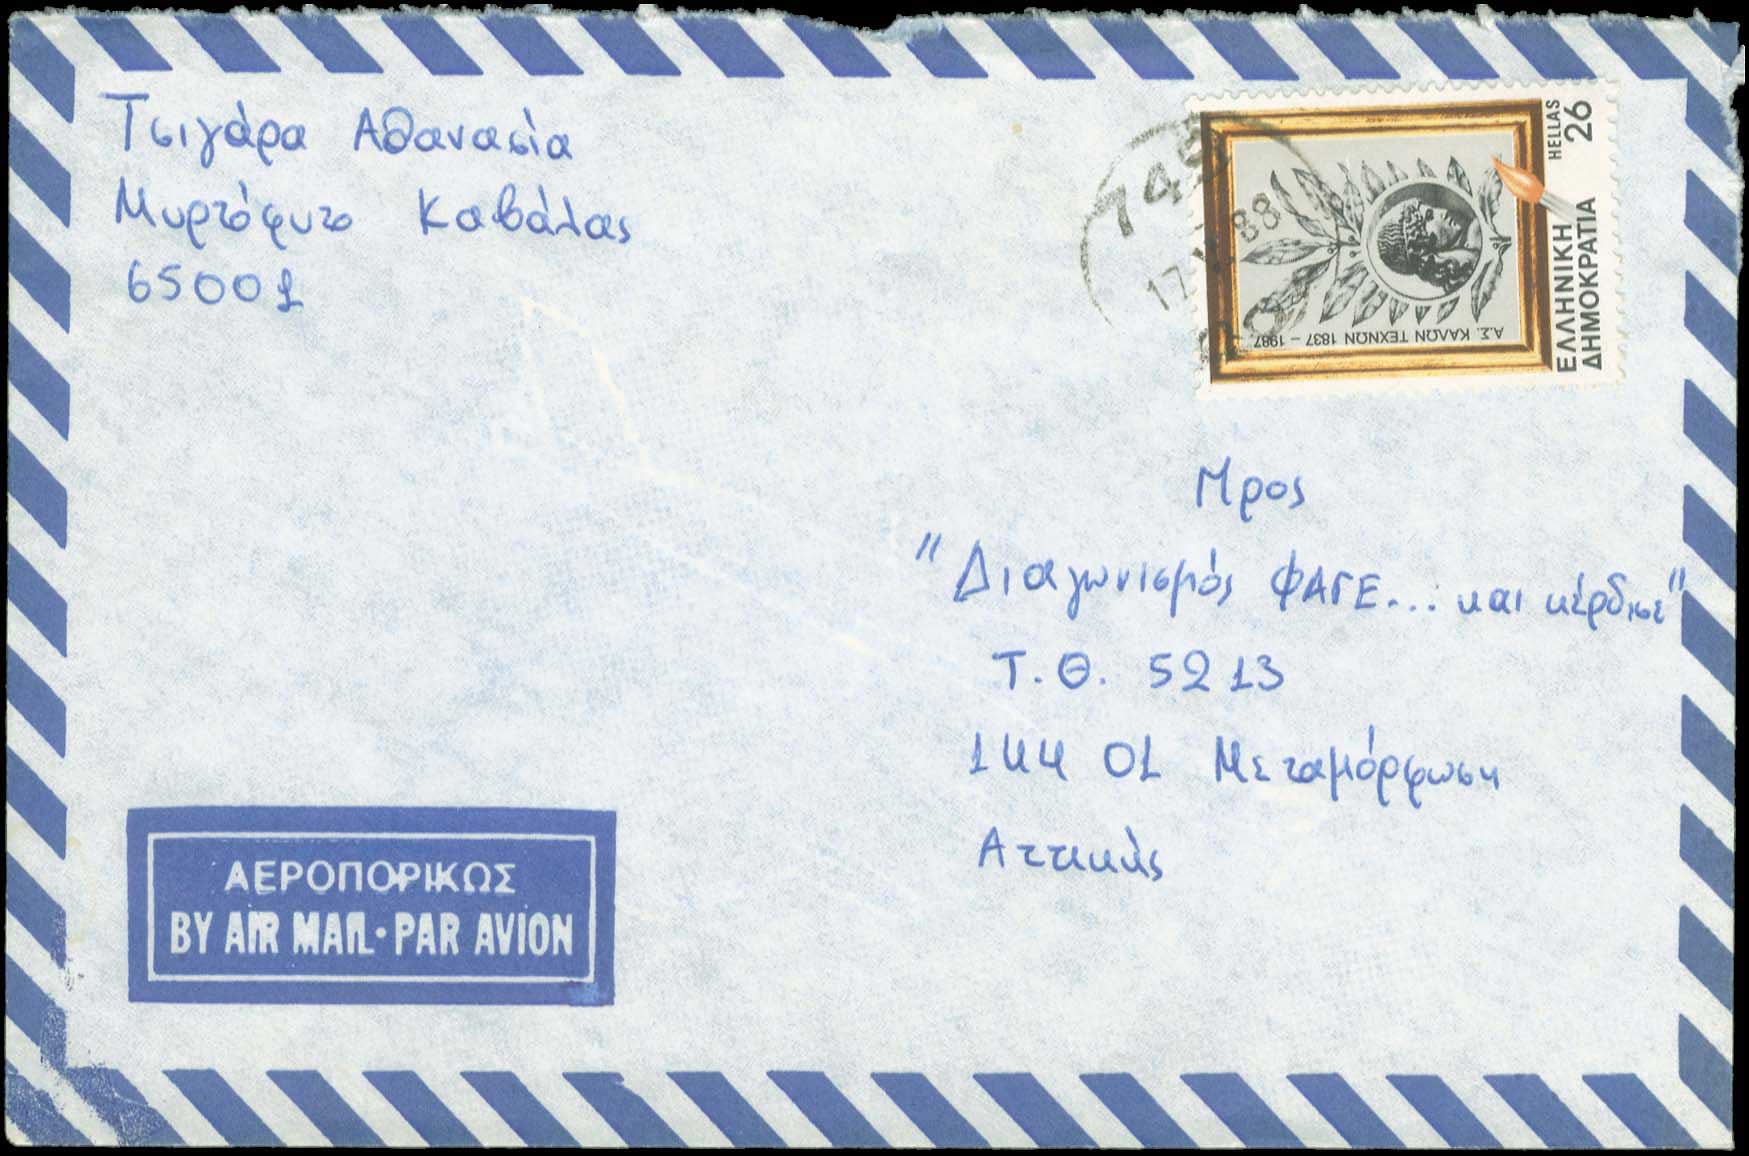 Τσιγάρα Αθανασία
Μυρτόφυτο Καβάλας
65001
745
17 88
HELLAS
26
ΕΛΛΗΝΙΚΗ
ΔΗΜΟΚΡΑΤΙΑ
Α.Σ. ΚΑΛΩΝ ΤΕΧΝΩΝ 1837 - 1987
Προς
"Διαγωνισμός ΦΑΓΕ... και κέρδισε"
Τ.Θ. 5213
144 01 Μεταμόρφωση
Αττικής
ΑΕΡΟΠΟΡΙΚΩΣ
BY AIR MAIL·PAR AVION